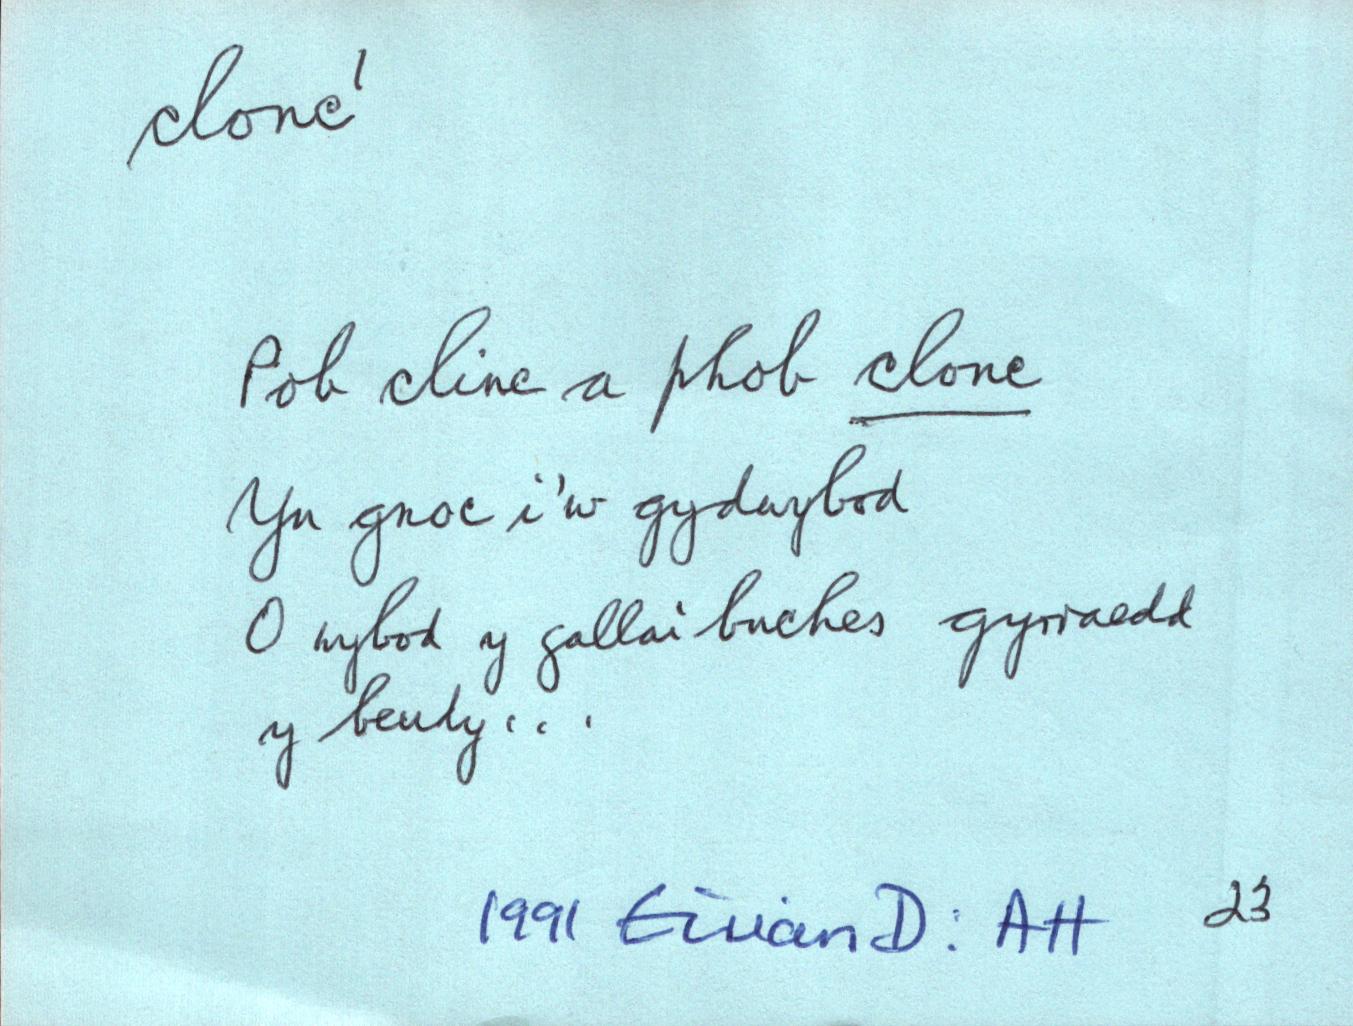 clonc'
Pob clinc a phob clonc
Yn gnoc i'w gydwybod
O wybod y gallai buches gyrraedd
y beudy...
1991 Eirian D: AH 23